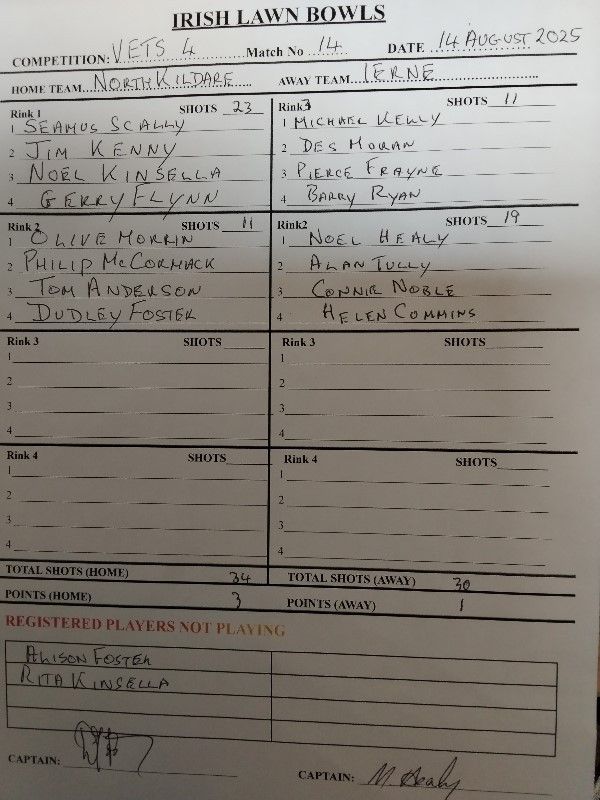 IRISH LAWN BOWLS
COMPETITION: VETS 4 Match No 14 DATE 14 AUGUST 2025
HOME TEAM NORTH KILDARE AWAY TEAM IERNE
Rink 1 SHOTS 23
1 SEAMUS SCALLY
2 JIM KENNY
3 NOEL KINSELLA
4 GERRY FLYNN
Rink3 SHOTS 11
1 MICHAEL KELLY
2 DES HORAN
3 PIERCE FRAYNE
4 BARRY RYAN
Rink 2 SHOTS 11
1 OLIVE MORRIN
2 PHILIP McCORMACK
3 TOM ANDERSON
4 DUDLEY FOSTER
Rink2 SHOTS 19
1 NOEL HEALY
2 ALAN TULLY
3 CONNIE NOBLE
4 HELEN COMMINS
Rink 3 SHOTS
1
2
3
4
Rink 3 SHOTS
1
2
3
4
Rink 4 SHOTS
1
2
3
4
Rink 4 SHOTS
1
2
3
4
TOTAL SHOTS (HOME) 34 TOTAL SHOTS (AWAY) 30
POINTS (HOME) 3 POINTS (AWAY) 1
REGISTERED PLAYERS NOT PLAYING
ALISON FOSTER
RITA KINSELLA
CAPTAIN:
CAPTAIN: N. Healy